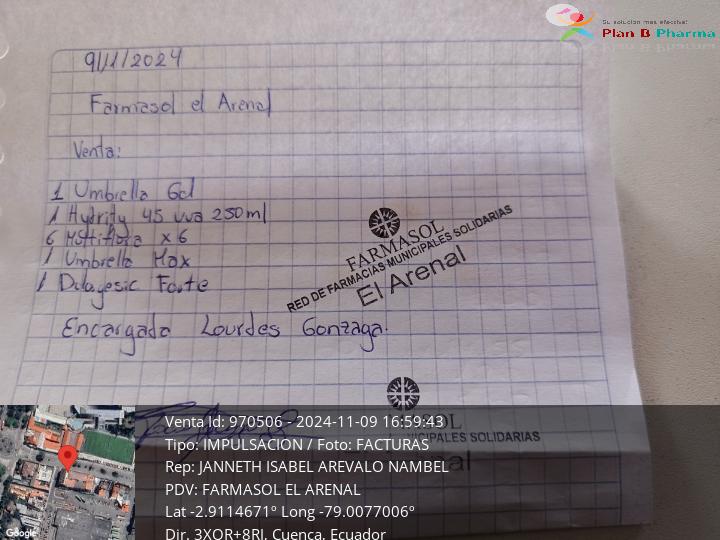 Su solución mas efectiva!
Plan B Pharma
9/11/2024
Farmasol el Arenal
Venta:
1 Umbrella Gel
1 Hydrity 45 uva 250ml
6 Multiflora x 6
1 Umbrella Max
1 Dologesic Forte
FARMASOL
RED DE FARMACIAS MUNICIPALES SOLIDARIAS
El Arenal
Encargada Lourdes Gonzaga.
Venta Id: 970506 - 2024-11-09 16:59:43
Tipo: IMPULSACION / Foto: FACTURAS
Rep: JANNETH ISABEL AREVALO NAMBEL
PDV: FARMASOL EL ARENAL
Lat -2.9114671° Long -79.0077006°
Dir. 3XQR+8RJ, Cuenca, Ecuador
Google